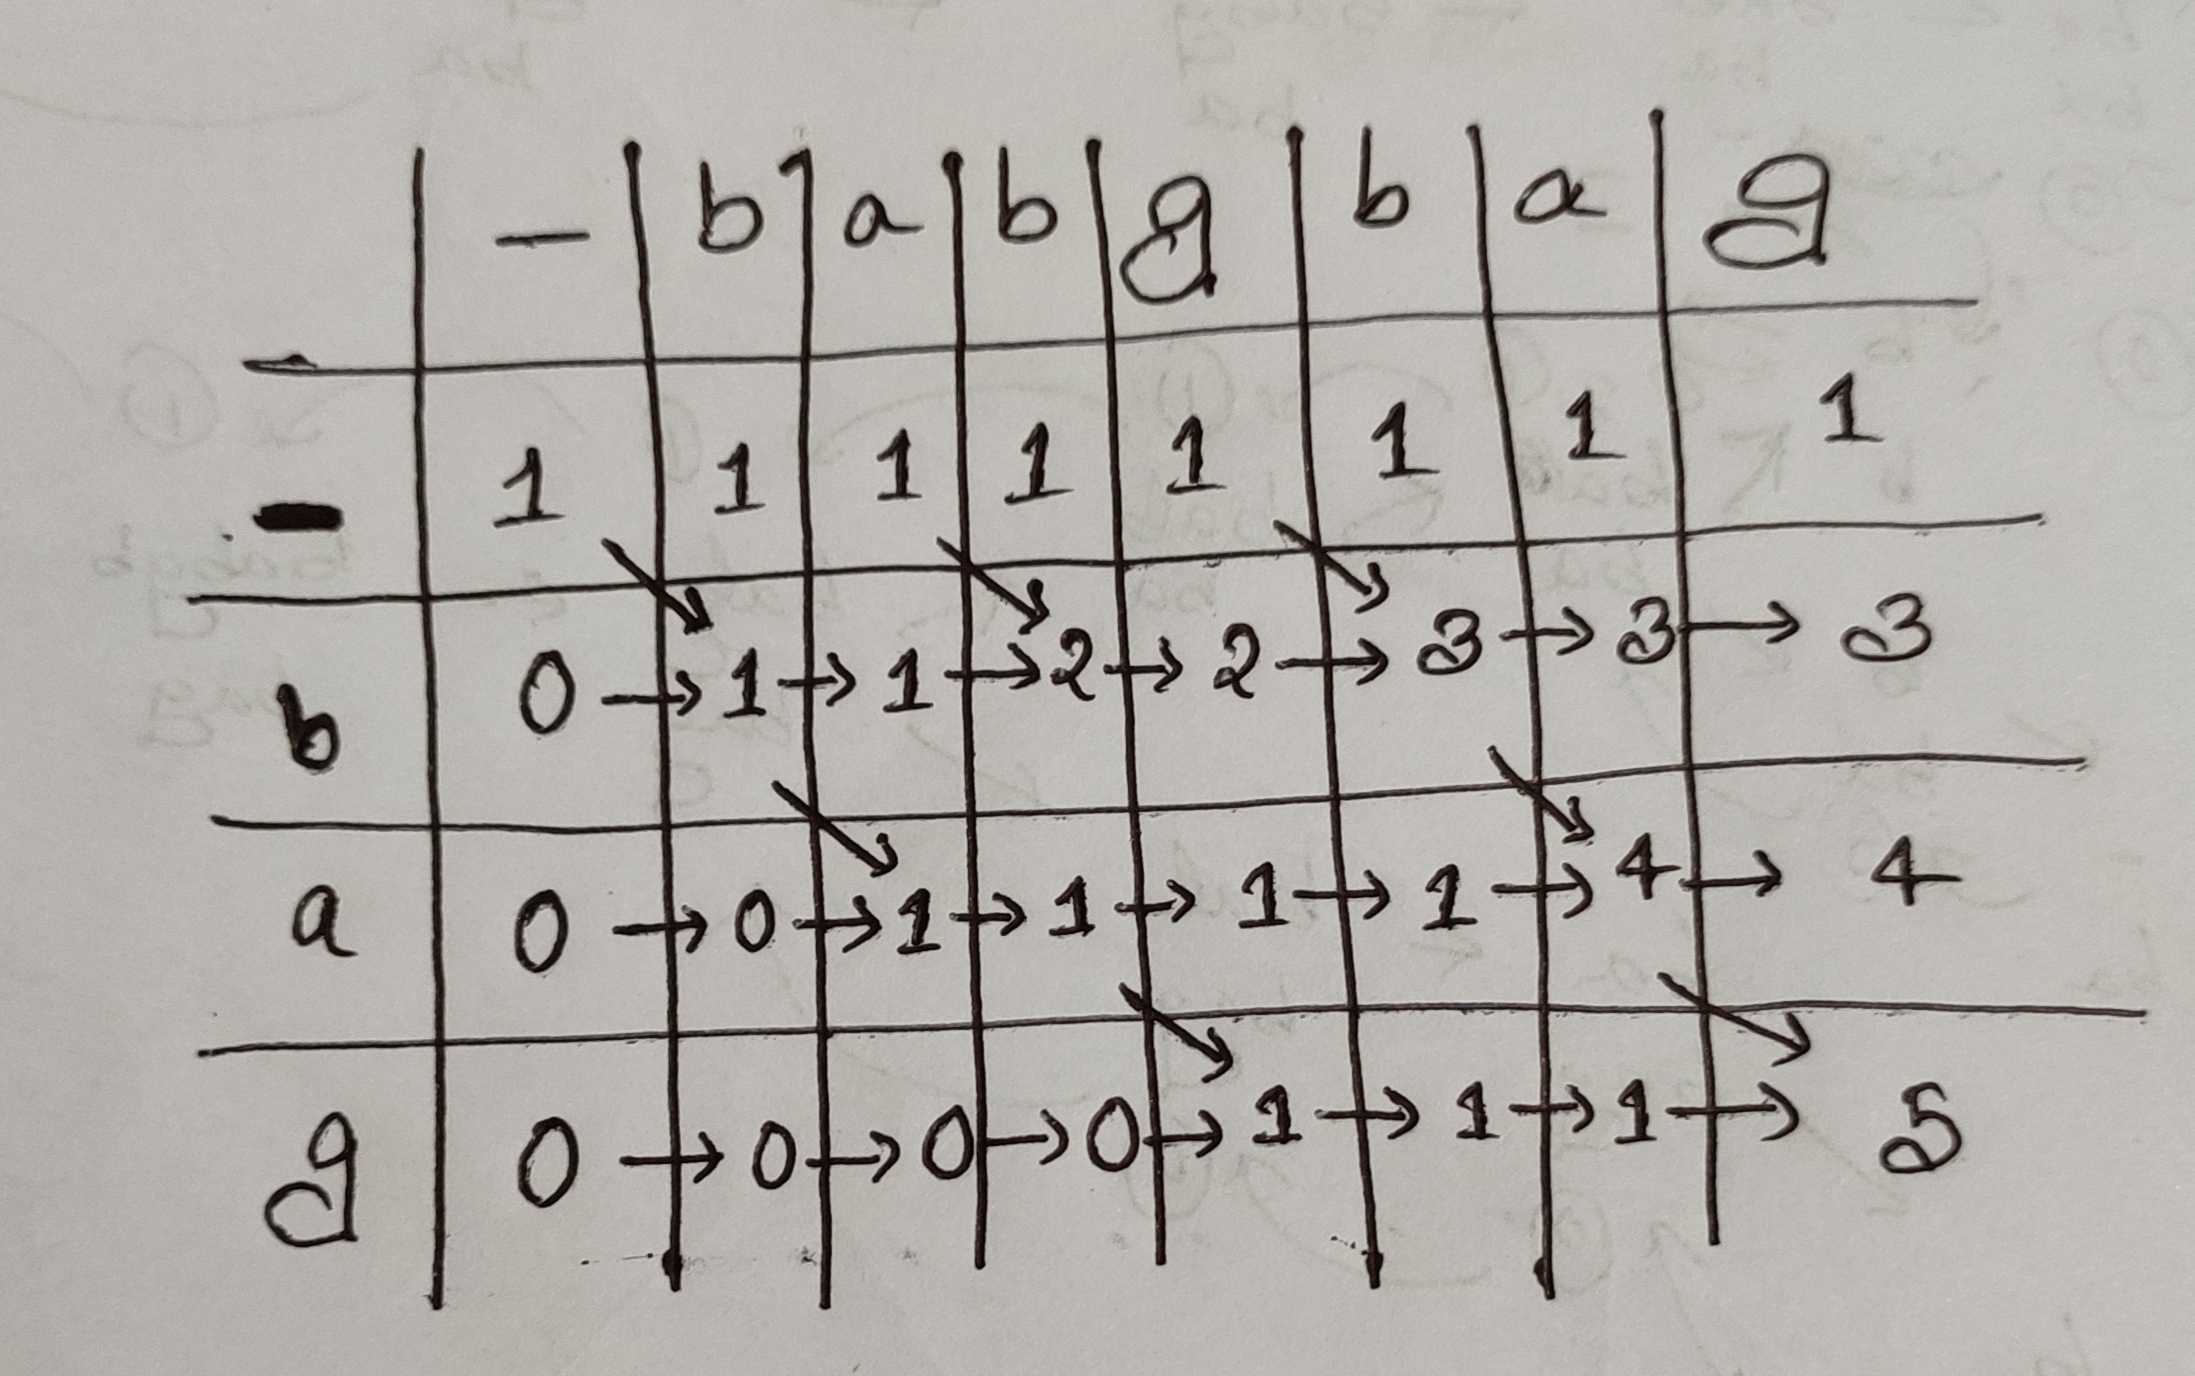 – b a b g b a g
- 1 1 1 1 1 1 1 1
b 0 → 1 → 1 → 2 → 2 → 3 → 3 → 3
a 0 → 0 → 1 → 1 → 1 → 1 → 4 → 4
g 0 → 0 → 0 → 0 → 1 → 1 → 1 → 5